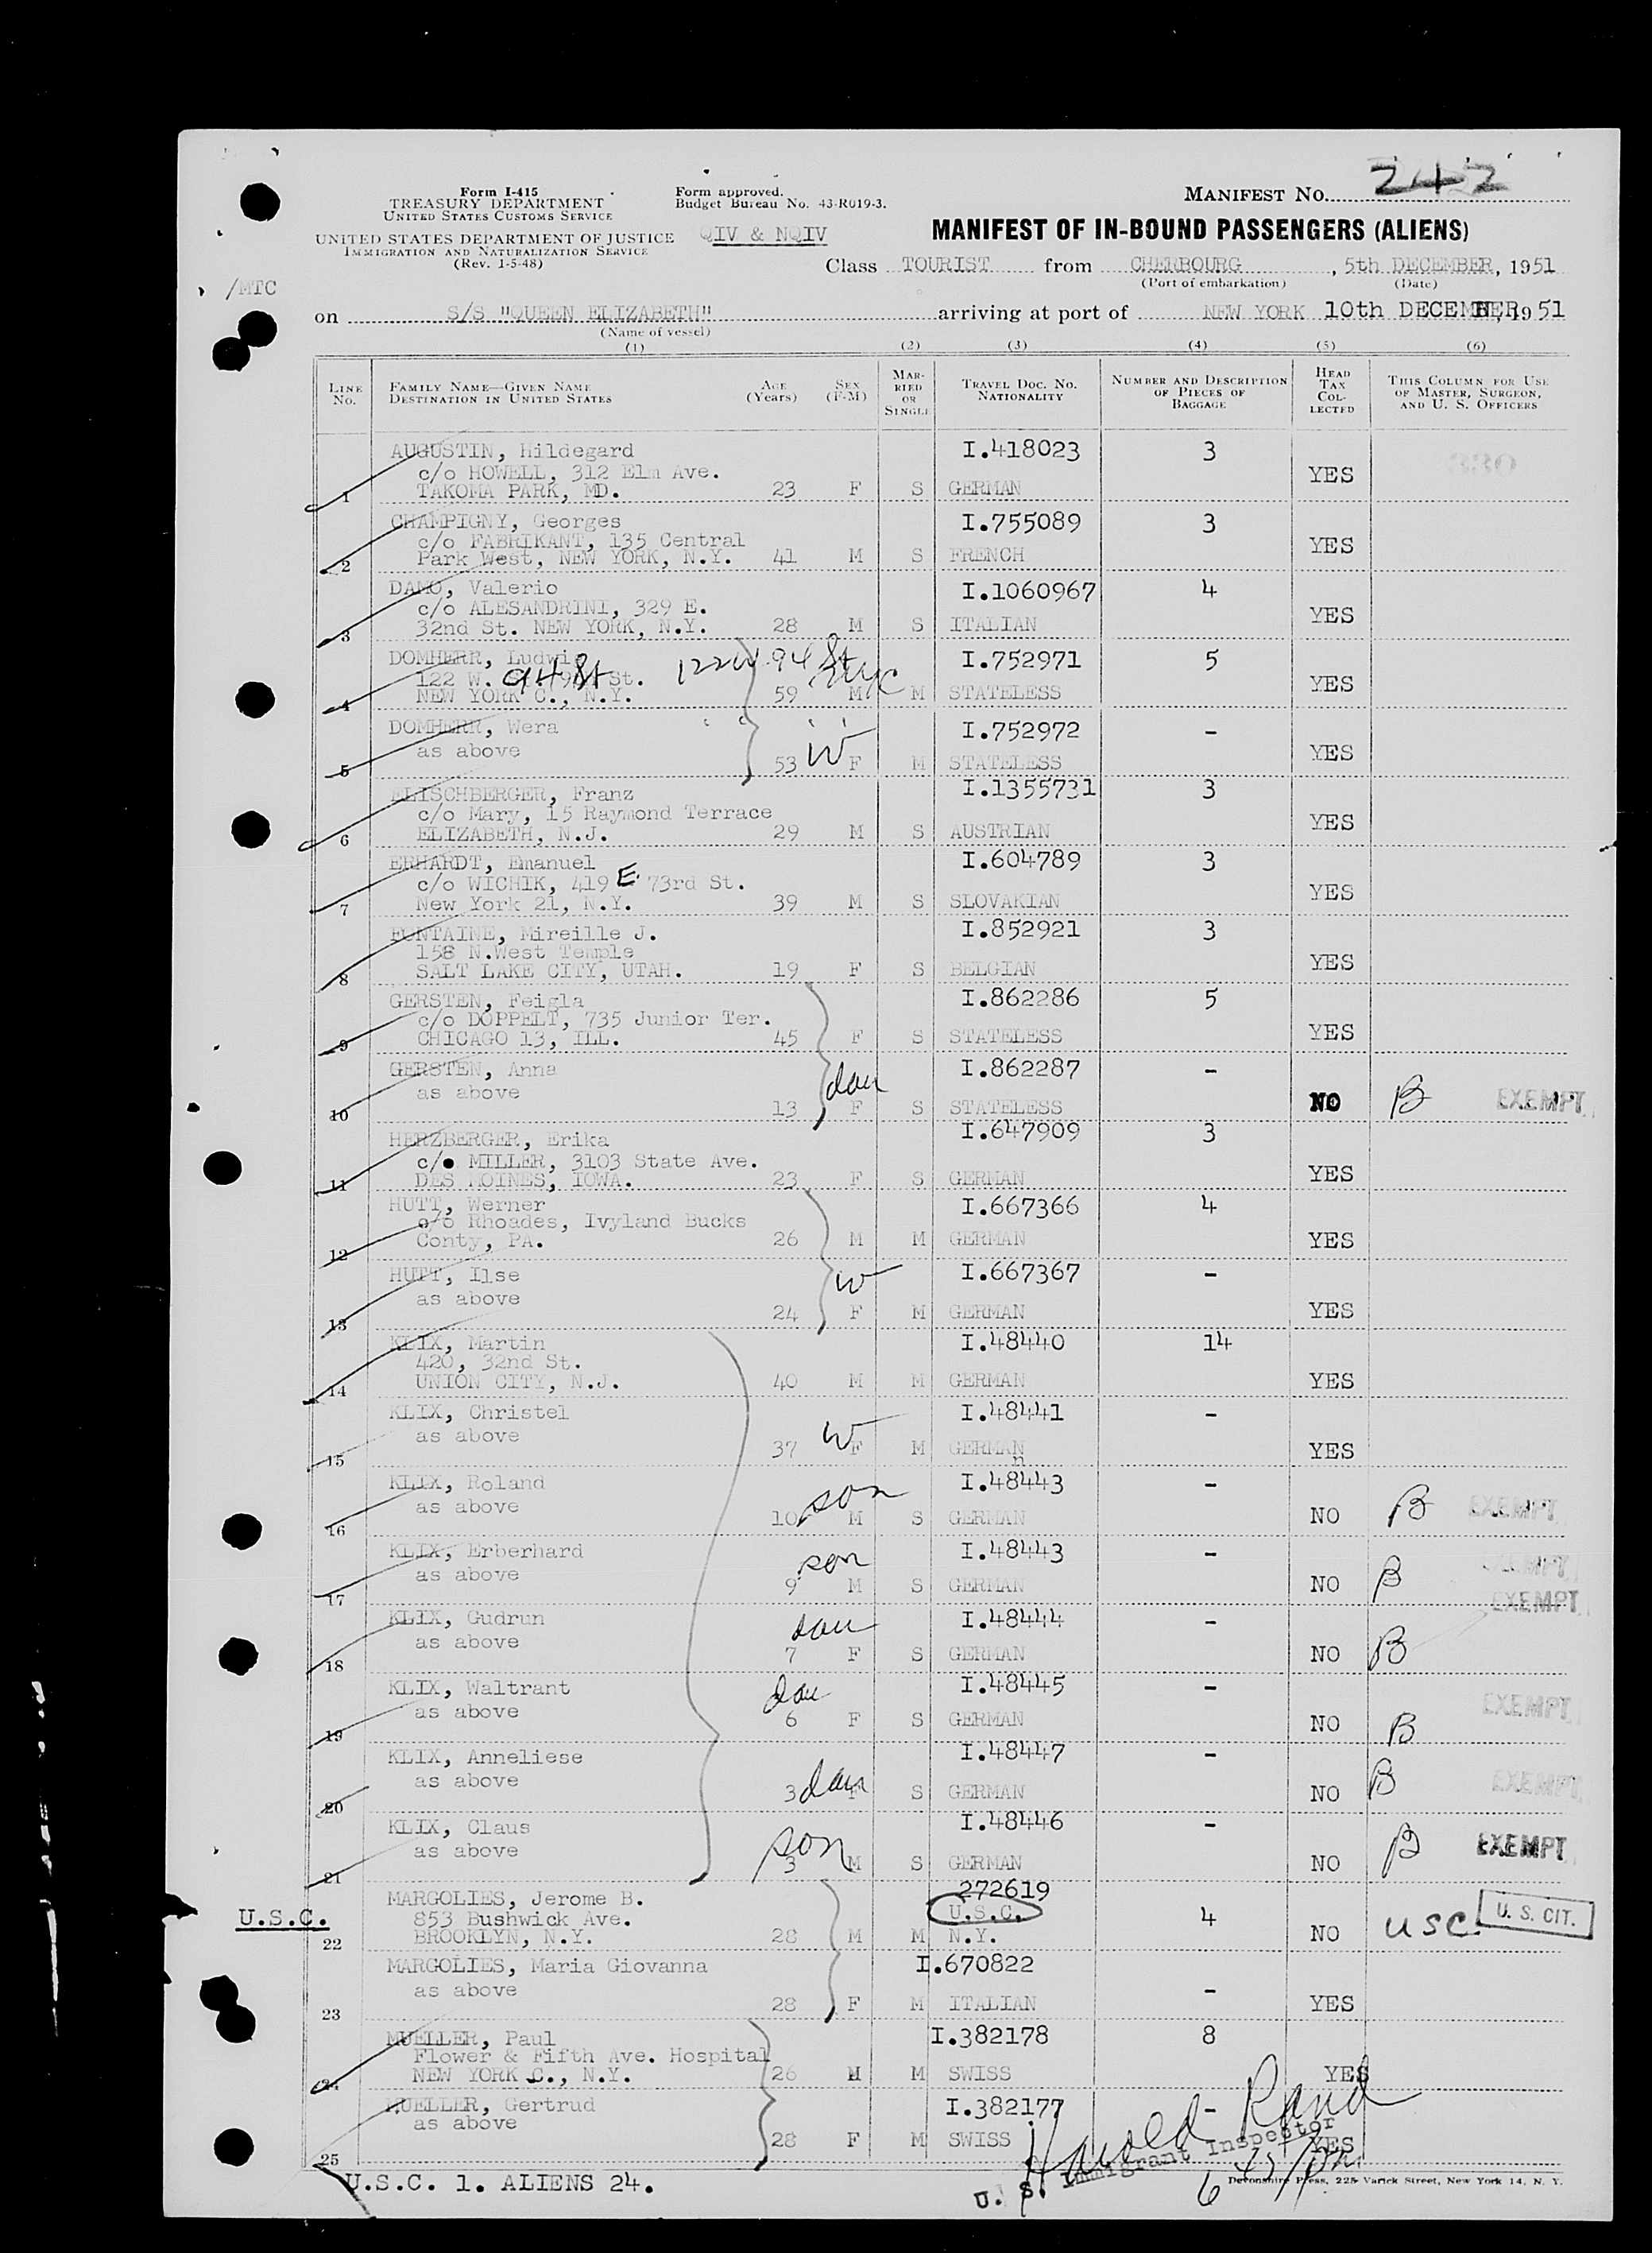 MANIFEST NO. 242
Form I-415
TREASURY DEPARTMENT
UNITED STATES CUSTOMS SERVICE
UNITED STATES DEPARTMENT OF JUSTICE
IMMIGRATION AND NATURALIZATION SERVICE
(Rev. 1-5-48)
Form approved.
Budget Bureau No. 43-R019-3.
QIV & NQIV
MANIFEST OF IN-BOUND PASSENGERS (ALIENS)
Class TOURIST from CHERBOURG, 5th DECEMBER, 1951
(Port of embarkation) (Date)
/MTC
on S/S "QUEEN ELIZABETH" arriving at port of NEW YORK 10th DECEMBER, 1951
(Name of vessel)
(1) (2) (3) (4) (5) (6)
LINE NO. FAMILY NAME—GIVEN NAME DESTINATION IN UNITED STATES AGE (Years) SEX (F-M) MARRIED OR SINGLE TRAVEL DOC. NO. NATIONALITY NUMBER AND DESCRIPTION OF PIECES OF BAGGAGE HEAD TAX COLLECTED THIS COLUMN FOR USE OF MASTER, SURGEON, AND U. S. OFFICERS
AUGUSTIN, Hildegard I.418023 3
c/o HOWELL, 312 Elm Ave. YES
1 TAKOMA PARK, MD. 23 F S GERMAN
CHAMPIGNY, Georges I.755089 3
c/o FABRIKANT, 135 Central YES
2 Park West, NEW YORK, N.Y. 41 M S FRENCH
DAMO, Valerio I.1060967 4
c/o ALESANDRINI, 329 E. YES
3 32nd St. NEW YORK, N.Y. 28 M S ITALIAN
DOMHERR, Ludwig 122 W. 94 St NYC I.752971 5
122 W. 94 St St. YES
4 NEW YORK C., N.Y. 59 M M STATELESS
DOMHERR, Wera " " " I.752972 -
as above W YES
5 53 F M STATELESS
ELISCHBERGER, Franz I.1355731 3
c/o Mary, 15 Raymond Terrace YES
6 ELIZABETH, N.J. 29 M S AUSTRIAN
ERHARDT, Emanuel I.604789 3
c/o WICHIK, 419 E. 73rd St. YES
7 New York 21, N.Y. 39 M S SLOVAKIAN
FONTAINE, Mireille J. I.852921 3
158 N.West Temple YES
8 SALT LAKE CITY, UTAH. 19 F S BELGIAN
GERSTEN, Feigla I.862286 5
c/o DOPPELT, 735 Junior Ter. YES
9 CHICAGO 13, ILL. 45 F S STATELESS
GERSTEN, Anna I.862287 -
as above dau NO B EXEMPT
10 13 F S STATELESS
HERZBERGER, Erika I.647909 3
c/o MILLER, 3103 State Ave. YES
11 DES MOINES, IOWA. 23 F S GERMAN
HUTT, Werner I.667366 4
c/o Rhoades, Ivyland Bucks
12 Conty, PA. 26 M M GERMAN YES
HUTT, Ilse I.667367 -
as above W
13 24 F M GERMAN YES
KLIX, Martin I.48440 14
420, 32nd St.
14 UNION CITY, N.J. 40 M M GERMAN YES
KLIX, Christel I.48441 -
as above W
15 37 F M GERMAN YES
n
KLIX, Roland I.48443 -
as above son B EXEMPT
16 10 M S GERMAN NO
KLIX, Erberhard I.48443 -
as above son EXEMPT
17 9 M S GERMAN NO B
KLIX, Gudrun I.48444 - EXEMPT
as above dau
18 7 F S GERMAN NO B
KLIX, Waltrant I.48445 -
as above dau EXEMPT
19 6 F S GERMAN NO B
KLIX, Anneliese I.48447 -
as above dau B EXEMPT
20 3 F S GERMAN NO
KLIX, Claus I.48446 -
as above son B EXEMPT
21 3 M S GERMAN NO
MARGOLIES, Jerome B. 272619
U.S.C. 853 Bushwick Ave. U.S.C. 4 usc. U. S. CIT.
22 BROOKLYN, N.Y. 28 M M N.Y. NO
MARGOLIES, Maria Giovanna I.670822
as above -
23 28 F M ITALIAN YES
MUELLER, Paul I.382178 8
Flower & Fifth Ave. Hospital
24 NEW YORK C., N.Y. 26 M M SWISS YES
MUELLER, Gertrud I.382177 -
as above
25 28 F M SWISS YES
Harold Rand
U. S. Immigrant Inspector
U.S.C. 1. ALIENS 24.
Devonshire Press, 225 Varick Street, New York 14, N. Y.